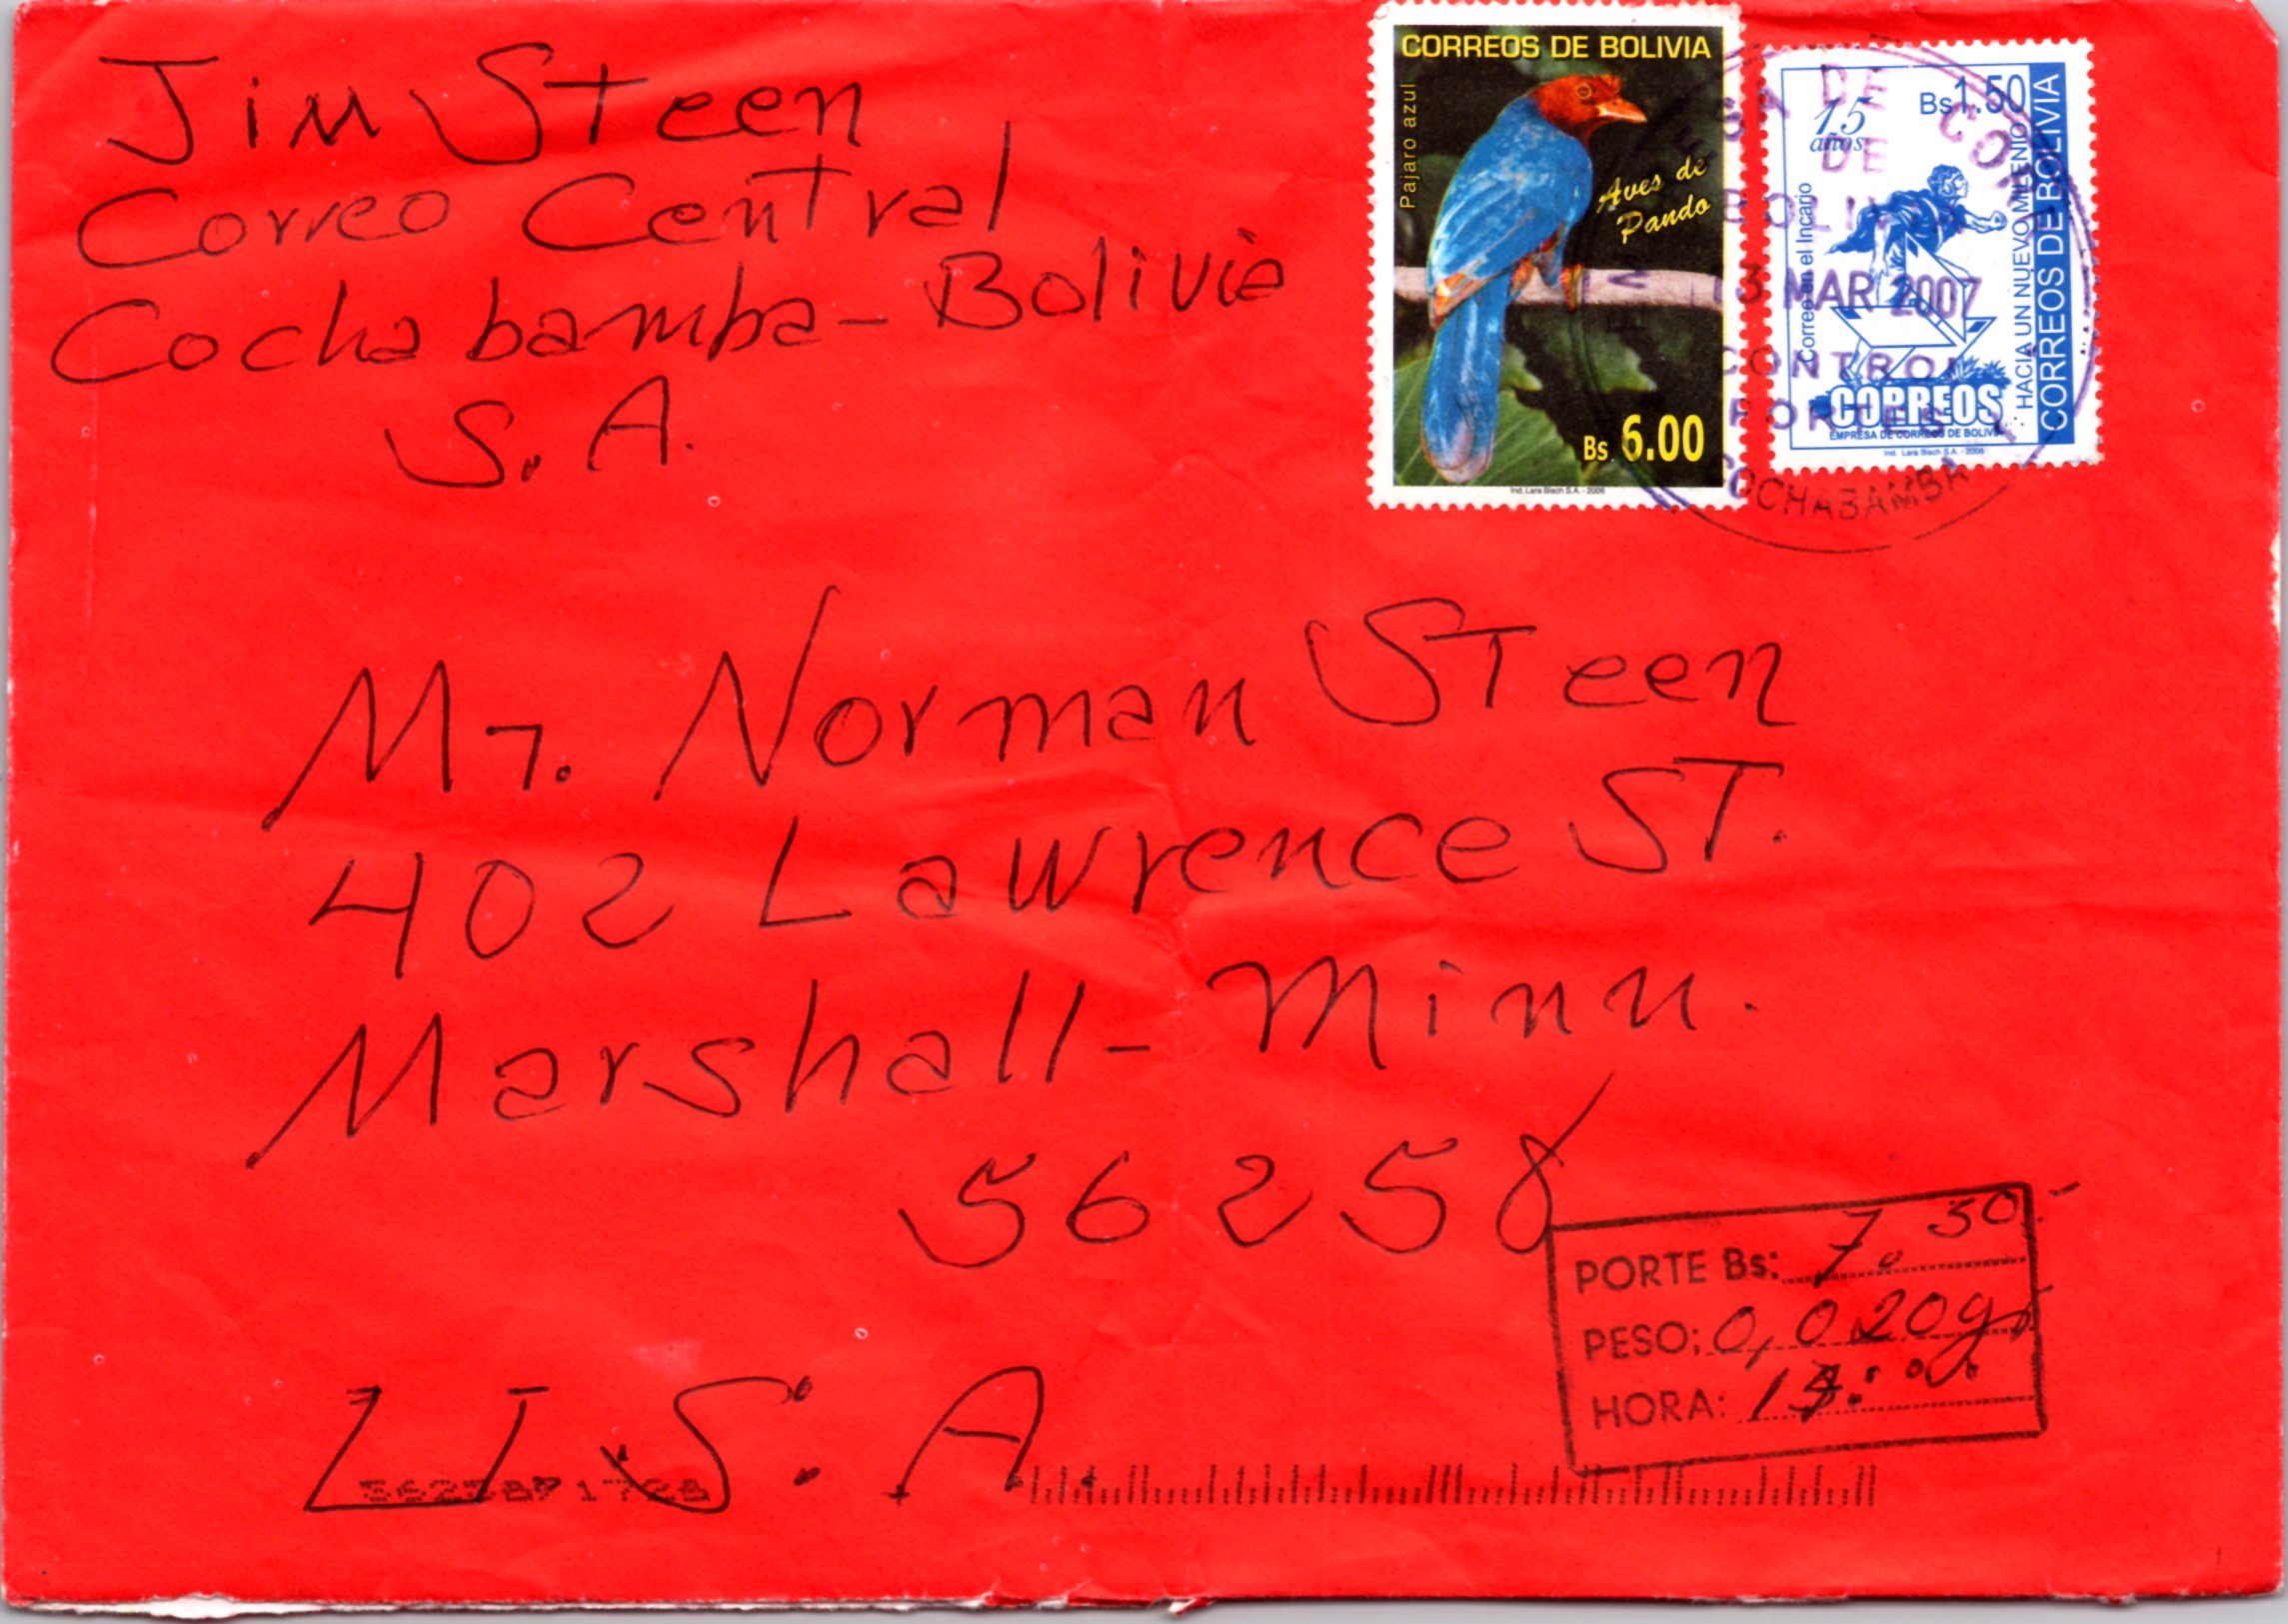 Jim Steen
Correo Central
Cochabamba - Bolivia
S. A.
CORREOS DE BOLIVIA
Pajaro azul
Aves de
Pando
Bs. 6.00
Ind. Lara Bisch S.A. - 2006
15
años
Bs 1.50
Correo en el Incario
HACIA UN NUEVO MILENIO
CORREOS DE BOLIVIA
CORREOS
EMPRESA DE CORREOS DE BOLIVIA
Ind. Lara Bisch S.A. - 2006
DE
DE
BOLIVIA
MAR 2007
CONTROL
PORTES
COCHABAMBA
Mr. Norman Steen
402 Lawrence ST.
Marshall - Minn.
56258
U. S. A.
PORTE Bs: 7.50.-
PESO: 0,020gr
HORA: